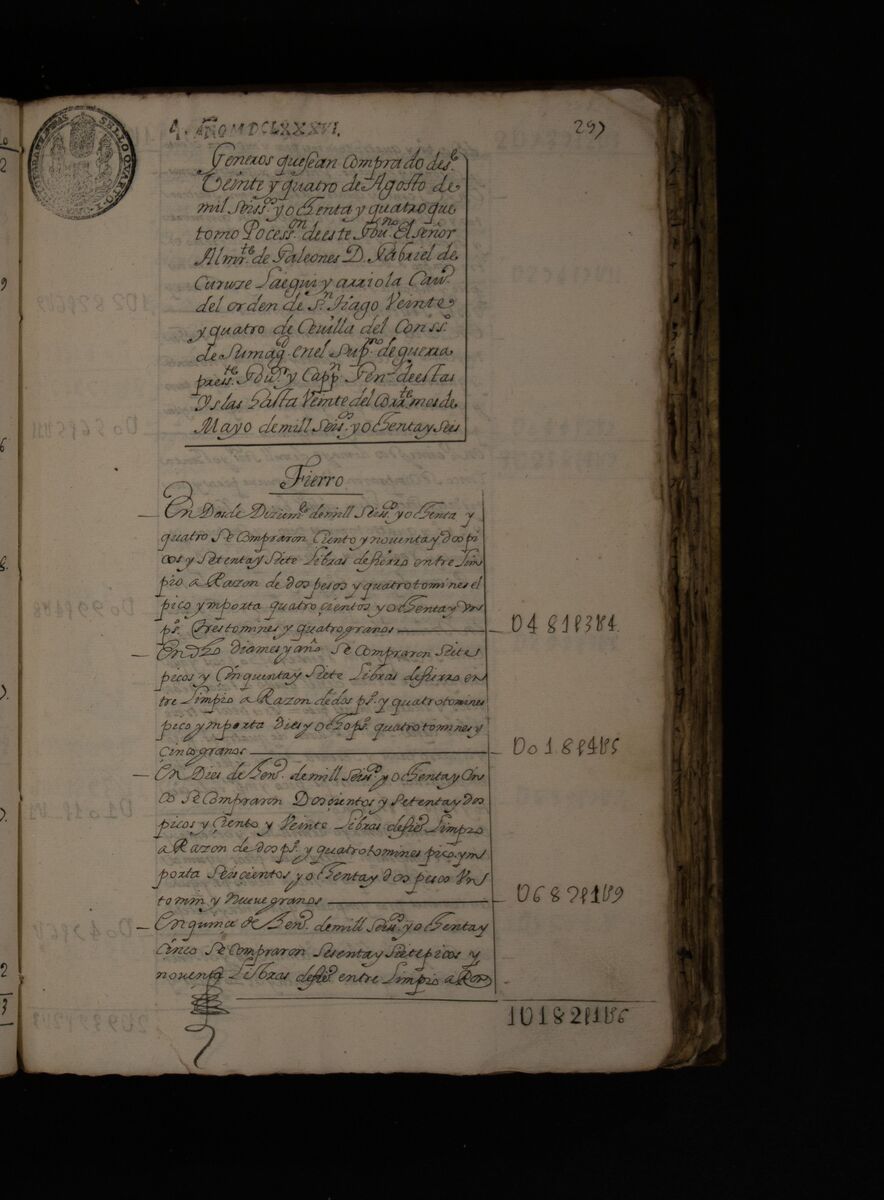 SELLO QUARTO
4. AÑO MDCLXXXVI.
297
Generos que sean Comprado des.e
Veinte y quatro de Agosto de
mil Seis.os y ochenta y quatro que
tomo Pocess.on de este Gou.no El Señor
Almir.te de Galeones D. Gabriel de
Curuze Laegui y arriola Cau.o
del orden de S.n Tiago Veinte
y quatro de Ceuilla del Cons.o
de Su mag.d en el Sup.mo de guerra
press.te Gou.or y Capp.n Gen.l de estas
Yslas Hasta Veinte del Corr.te mes de
Mayo de mill Seis.os y ochenta y Seis
Fierro
En Dos de Diziem.e de mill Seis.os y ochenta y
quatro Se Compraron Ciento y nouenta y dos pi
cos y Setenta y Siete Libras de fierro entre lim
pio a Razon de dos pesos y quatro tomines el
pico y ymporta quatrocientos y ochenta y Un
p.s tres tomines y quatro granos
D481p3tt4
En dho dia mes y año Se Compraron Siete
picos y Cinquenta y Siete Libras de fierro en
tre Limpio a Razon de dos p.s y quatro tomines
pico y ymporta Dies y ocho p.s quatro tomines y
Cinco granos
D018p4tt5
En Dies de Hen.o de mill Seis.os y ochenta y Cin
co Se Compraron Doscientos y Setenta y dos
picos y Ciento y Veinte Libras de fie.o Limpio
a Razon de dos p.s y quatro tomines pico y ym
porta Seiscientos y ochenta y dos pesos Un
tomin y Nueue granos
D682p1tt9
En quinse de Hen.o de mill Seis.os y ochenta y
Cinco Se Compraron Sesenta y Siete picos y
nouenta Libras de fie.o entre Limpio a Raz
1D182p1tt6